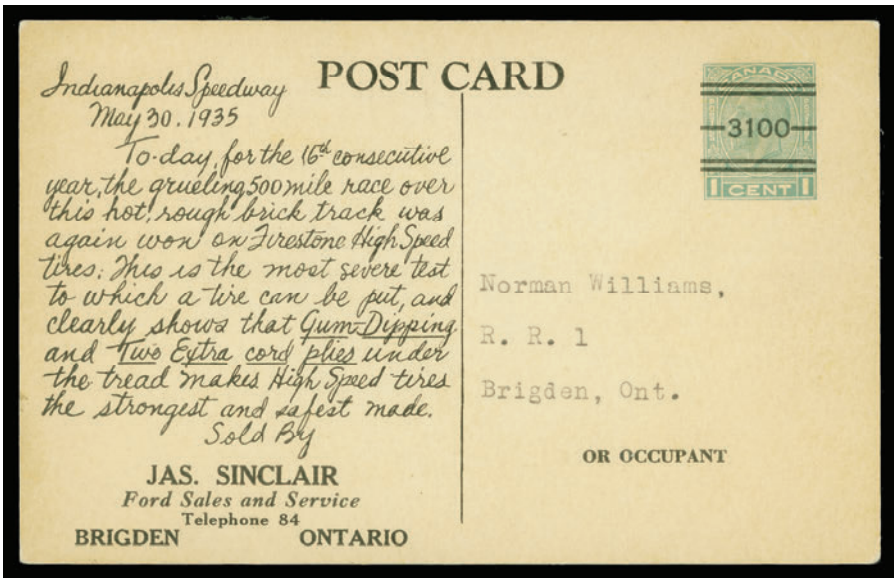 POST CARD
Indianapolis Speedway
May 30. 1935
To-day, for the 16th consecutive
year, the grueling 500 mile race over
this hot, rough brick track was
again won on Firestone High Speed
tires. This is the most severe test
to which a tire can be put, and
clearly shows that Gum-Dipping
and Two Extra cord plies under
the tread makes High Speed tires
the strongest and safest made.
Sold By
JAS. SINCLAIR
Ford Sales and Service
Telephone 84
BRIGDEN ONTARIO
CANADA
3100
1 CENT 1
Norman Williams,
R. R. 1
Brigden, Ont.
OR OCCUPANT